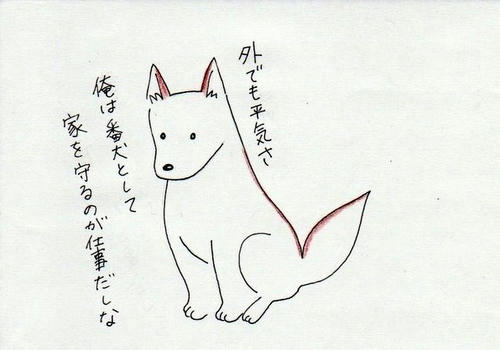 外でも平気さ
俺は番犬として
家を守るのが仕事だしな